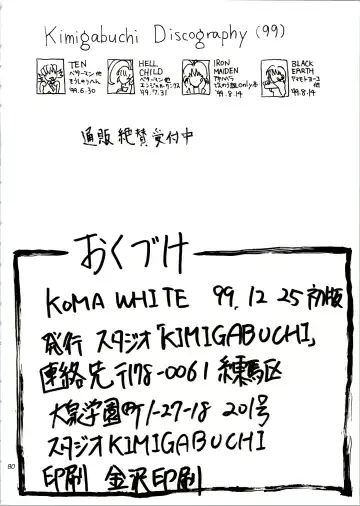 Kimigabuchi Discography (99)
TEN
ベターマン 他
'99.6.30
HELL
CHILD
ベターマン 他
'97.7.31
IRON
MAIDEN
'99.8.14
BLACK
EARTH
'99.8.14
通販 絶賛受付中
おくづけ
KOMA WHITE 99.12.25 初版
発行 スタジオ「KIMIGABUCHI」
連絡先 〒178-0061 練馬区
大泉学園町1-27-18 201号
スタジオKIMIGABUCHI
印刷 金沢印刷
80